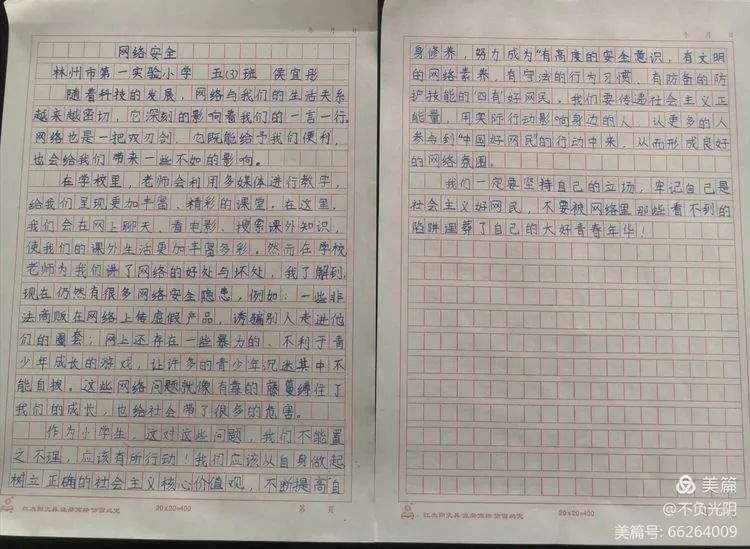 年 月 日
网络安全
林州市第一实验小学 五(3)班 侯宜彤
随着科技的发展，网络与我们的生活关系
越来越密切，它深刻的影响着我们的一言一行。
网络也是一把双刃剑，它既能给予我们便利，
也会给我们带来一些不如的影响。
在学校里，老师会利用多媒体进行教学，
给我们呈现更加丰富、精彩的课堂。在这里，
我们会在网上聊天、看电影、搜索课外知识，
使我们的课外生活更加丰富多彩。然而在学校
老师为我们讲了网络的好处与坏处，我了解到，
现在仍然有很多网络安全隐患，例如：一些非
法商贩在网络上传虚假产品，诱骗别人走进他
们的圈套；网上还存在一些暴力的、不利于青
少年成长的游戏，让许多的青少年沉迷其中不
能自拔。这些网络问题就像有毒的藤蔓缚住了
我们的成长，也给社会带了很多的危害。
作为小学生，这对这些问题，我们不能置
之不理，应该有所行动！我们应该从自身做起
树立正确的社会主义核心价值观，不断提高自
20×20=400
第 页
年 月 日
身修养，努力成为“有高度的安全意识，有文明
的网络素养、有守法的行为习惯、有防备的防
护技能的“四有”好网民。我们要传递社会主义正
能量，用实际行动影响身边的人，让更多的人
参与到“中国好网民”的行动中来，从而形成良好
的网络氛围。
我们一定要坚持自己的立场，牢记自己是
社会主义好网民，不要被网络里那些看不到的
陷阱埋葬了自己的大好青春年华！
20×20=400
美篇
@不负光阴
美篇号: 66264009